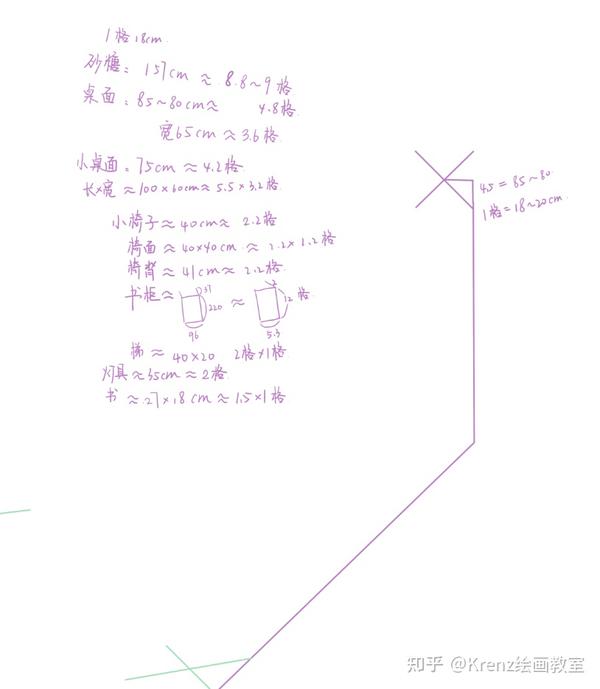 1格18cm
砂糖：157cm ≈ 8.8~9格
桌面：85~80cm≈ 4.8格
宽65cm ≈ 3.6格
小桌面：75cm ≈ 4.2格
长×宽 ≈100×60cm≈ 5.5×3.2格
小椅子≈40cm≈ 2.2格
椅面≈40×40cm ≈ 2.2×2.2格
椅背≈41cm≈ 2.2格
书柜≈ 37 220 96 ≈ 2 12格 5.3
梯≈ 40×20 2格×1格
灯具≈35cm≈2格
书≈27×18cm≈1.5×1格
4.5=85~80
1格=18~20cm
知乎 @Krenz绘画教室